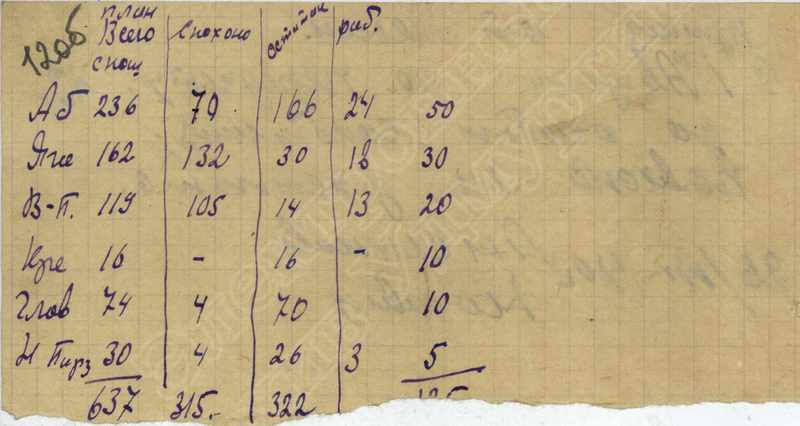 план
1206 Всего Скохоно раб.
Аб 236 70 166 24 50
162 132 30 18 30
В-П. 119 105 14 13 20
16 - 16 - 10
Глав 74 4 70 10
Н Пирз 30 4 26 3 5
637 315.- 322 125